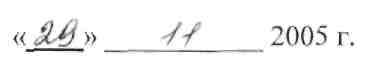 «29» 11 2005 г.